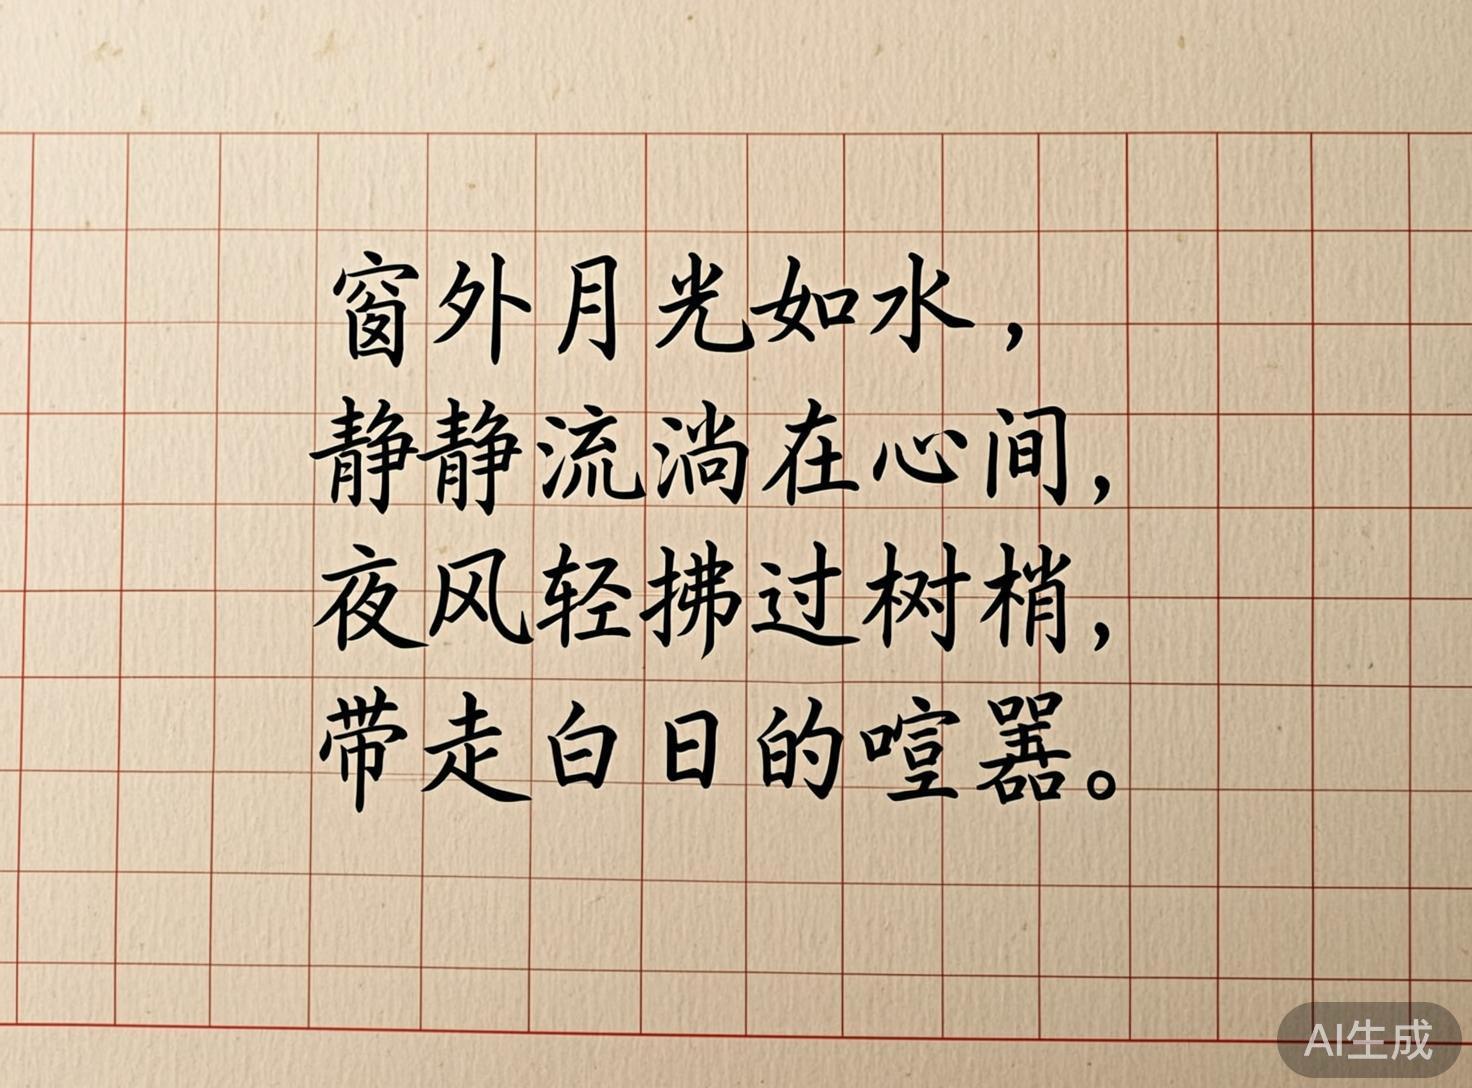 窗外月光如水，
静静流淌在心间，
夜风轻拂过树梢，
带走白日的喧嚣。
AI生成